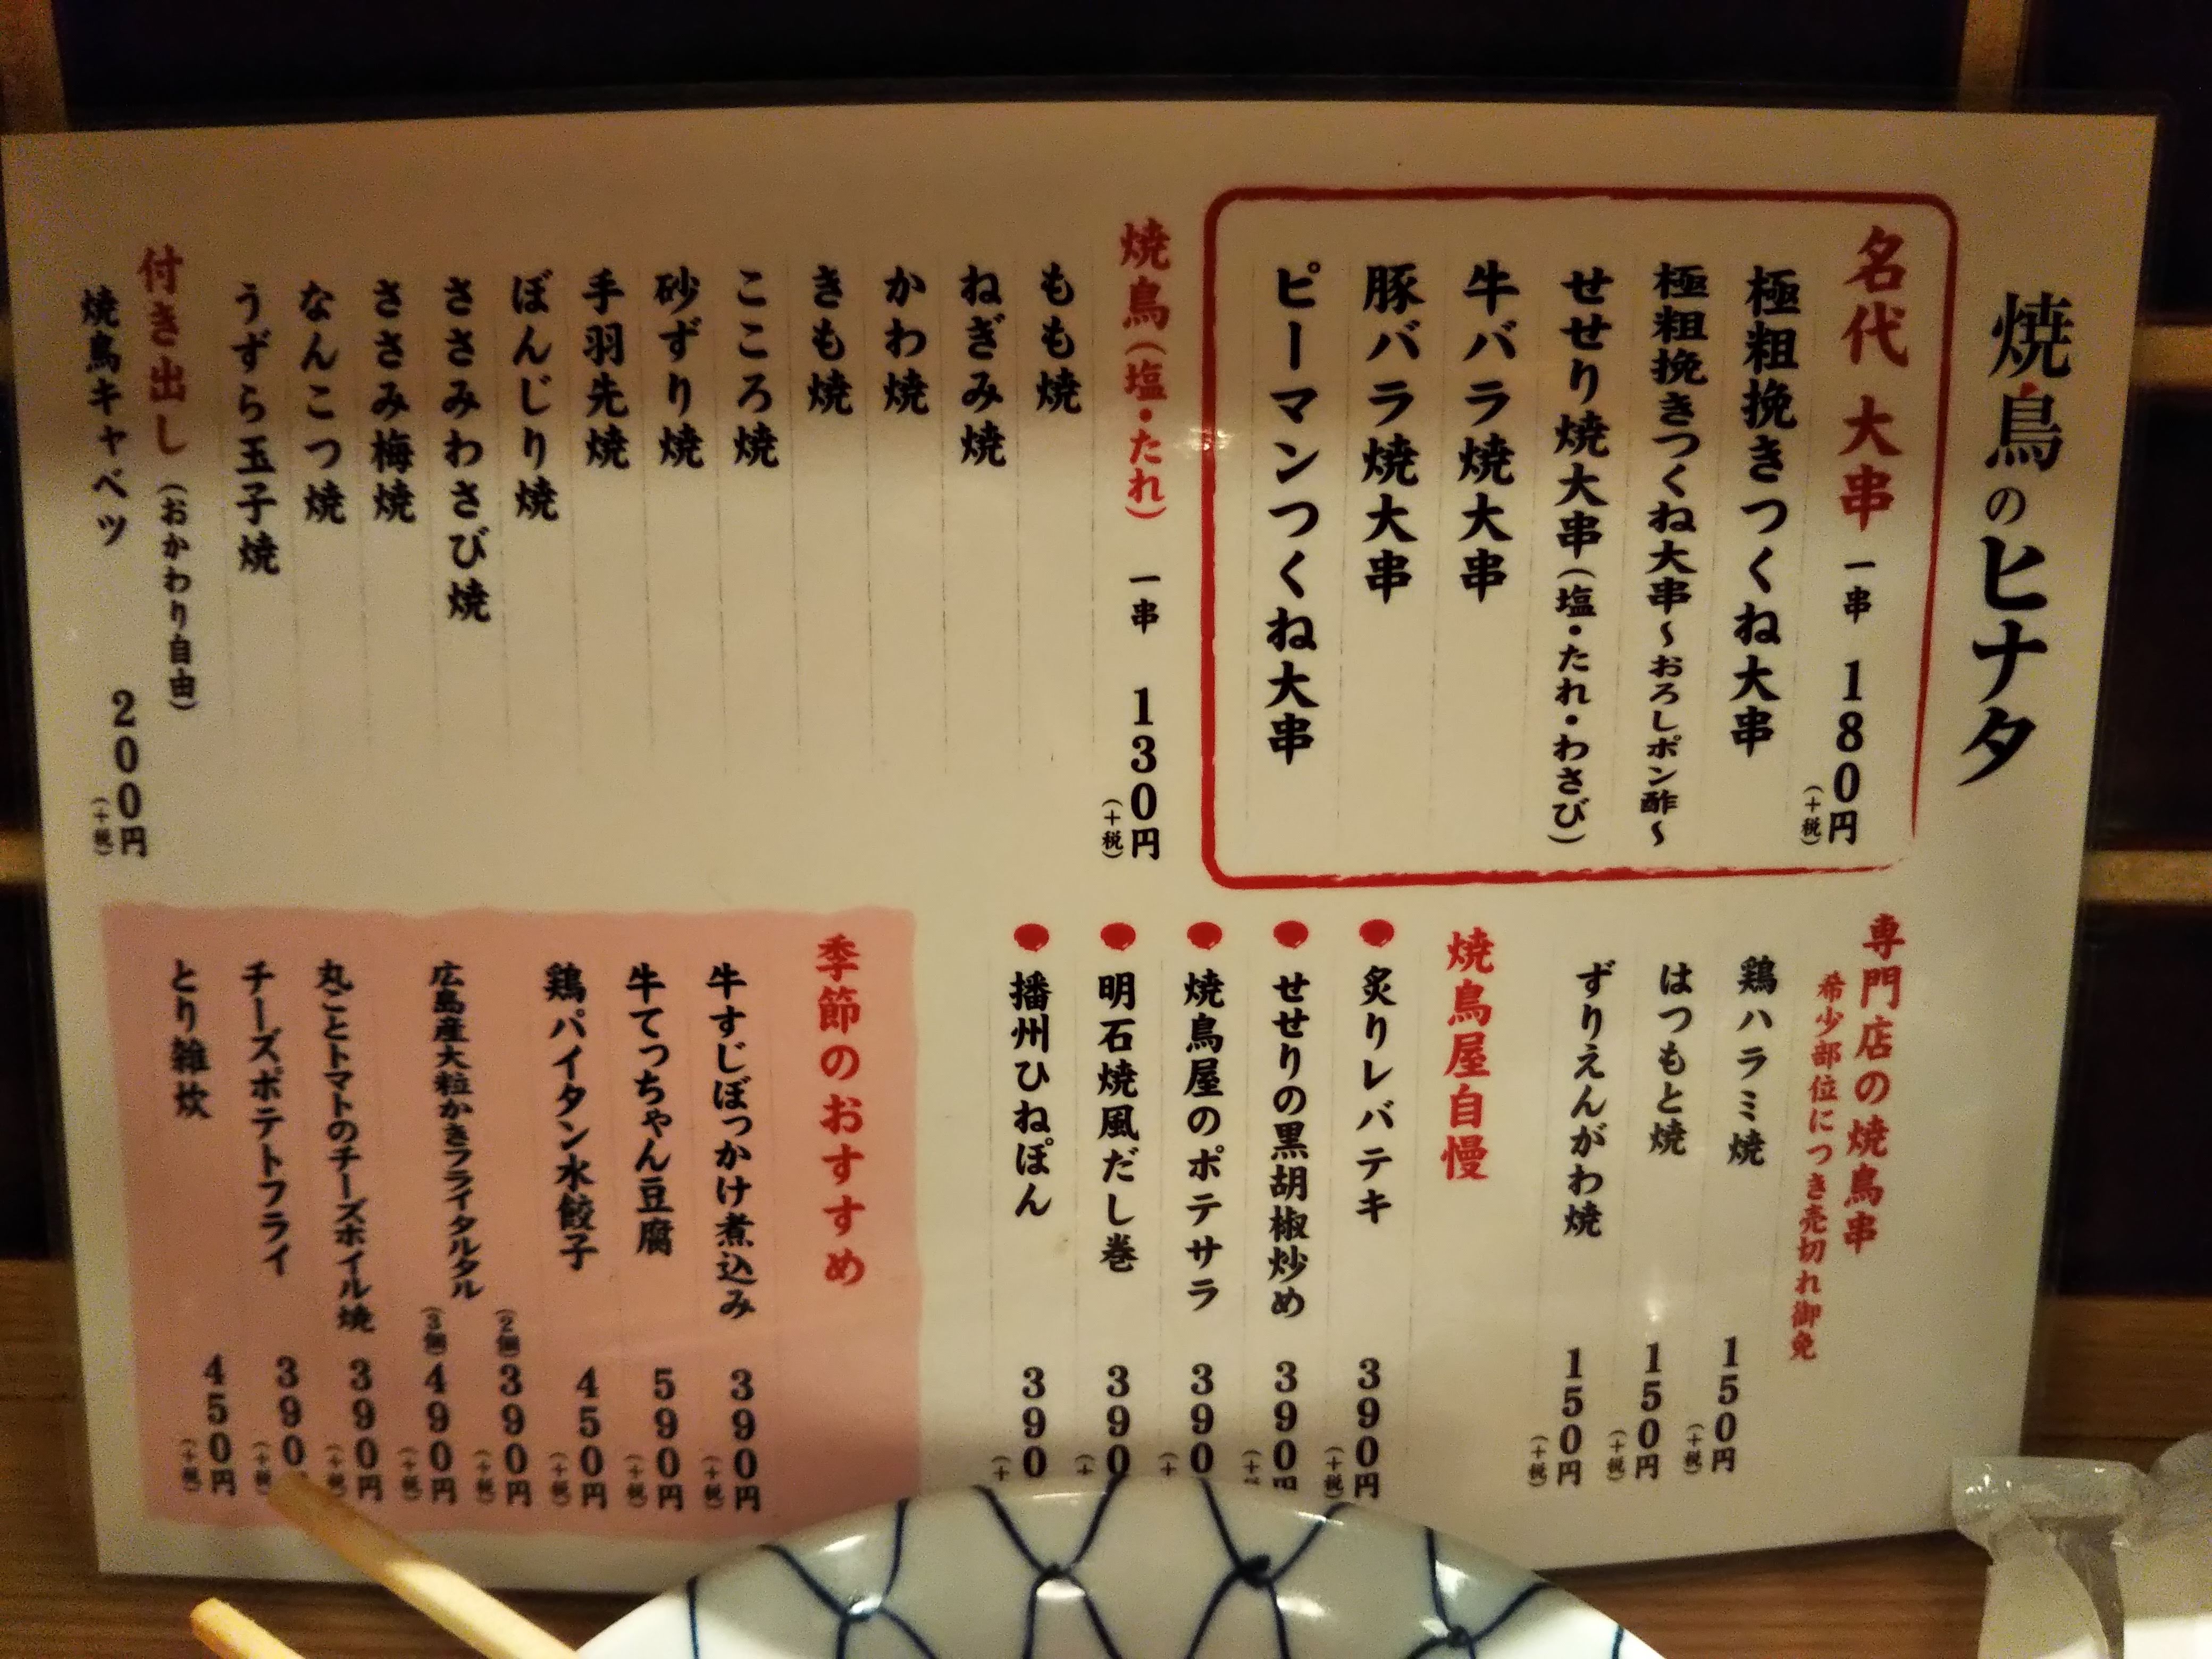 焼鳥のヒナタ
名代 大串 一串 180円(+税)
極粗挽きつくね大串
極粗挽きつくね大串~おろしポン酢~
せせり焼大串(塩・たれ・わさび)
牛バラ焼大串
豚バラ焼大串
ピーマンつくね大串
焼鳥(塩・たれ) 一串 130円(+税)
もも焼
ねぎみ焼
かわ焼
きも焼
こころ焼
砂ずり焼
手羽先焼
ぼんじり焼
ささみわさび焼
ささみ梅焼
なんこつ焼
うずら玉子焼
付き出し(おかわり自由)
焼鳥キャベツ 200円(+税)
専門店の焼鳥串
希少部位につき売切れ御免
鶏ハラミ焼 150円(+税)
はつもと焼 150円(+税)
ずりえんがわ焼 150円(+税)
焼鳥屋自慢
●炙りレバテキ 390円(+税)
●せせりの黒胡椒炒め 390円(+
●焼鳥屋のポテサラ 390(+
●明石焼風だし巻 390(+
●播州ひねぽん 390(+
季節のおすすめ
牛すじぼっかけ煮込み 390円(+税)
牛てっちゃん豆腐 590円(+税)
鶏パイタン水餃子 450円(+税)
広島産大粒かきフライタルタル (2個)390円(+税)
(3個)490円(+税)
丸ごとトマトのチーズホイル焼 390円(+税)
チーズポテトフライ 390(+税
とり雑炊 450円(+税)